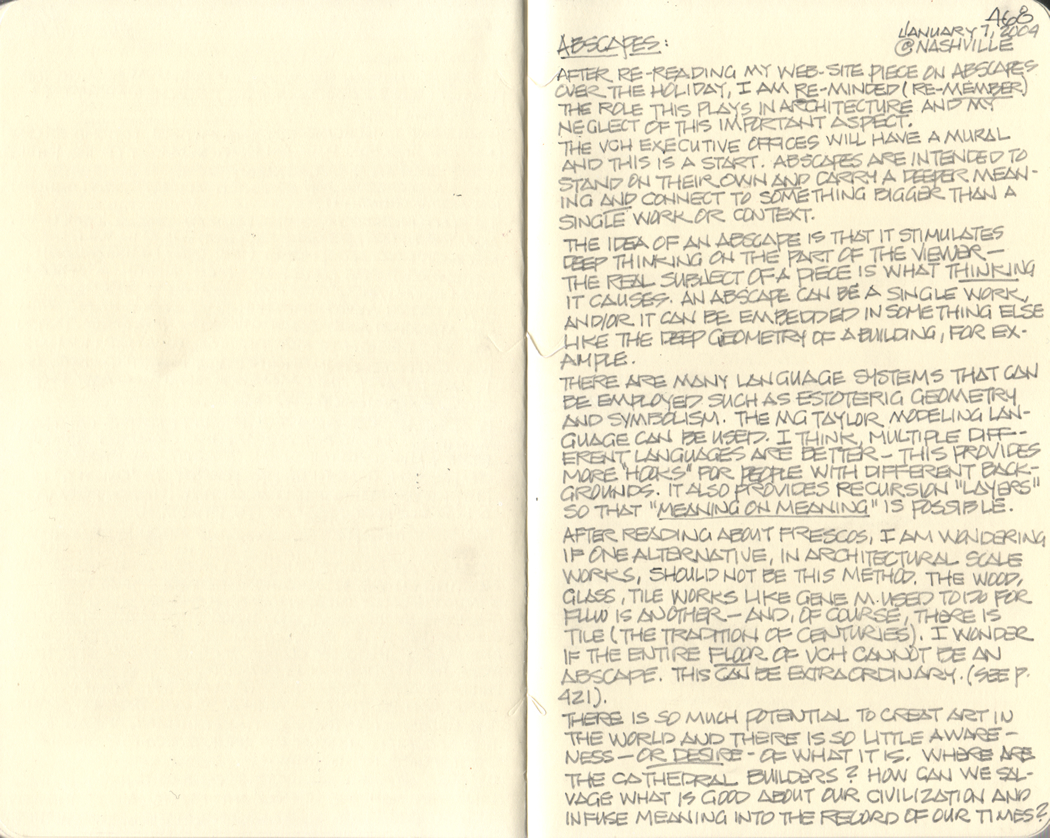 468
JANUARY 7, 2004
@NASHVILLE
ABSCAPES:
AFTER RE-READING MY WEB-SITE PIECE ON ABSCAPES
OVER THE HOLIDAY, I AM RE-MINDED (RE-MEMBER)
THE ROLE THIS PLAYS IN ARCHITECTURE AND MY
NEGLECT OF THIS IMPORTANT ASPECT.
THE VCH EXECUTIVE OFFICES WILL HAVE A MURAL
AND THIS IS A START. ABSCAPES ARE INTENDED TO
STAND ON THEIR OWN AND CARRY A DEEPER MEAN-
ING AND CONNECT TO SOMETHING BIGGER THAN A
SINGLE WORK OR CONTEXT.
THE IDEA OF AN ABSCAPE IS THAT IT STIMULATES
DEEP THINKING ON THE PART OF THE VIEWER—
THE REAL SUBJECT OF A PIECE IS WHAT THINKING
IT CAUSES. AN ABSCAPE CAN BE A SINGLE WORK,
AND/OR IT CAN BE EMBEDDED IN SOMETHING ELSE
LIKE THE DEEP GEOMETRY OF A BUILDING, FOR EX-
AMPLE.
THERE ARE MANY LANGUAGE SYSTEMS THAT CAN
BE EMPLOYED SUCH AS ESTOTERIC GEOMETRY
AND SYMBOLISM. THE MG TAYLOR MODELING LAN-
GUAGE CAN BE USED. I THINK, MULTIPLE DIFF-
ERENT LANGUAGES ARE BETTER — THIS PROVIDES
MORE "HOOKS" FOR PEOPLE WITH DIFFERENT BACK-
GROUNDS. IT ALSO PROVIDES RECURSION "LAYERS"
SO THAT "MEANING ON MEANING" IS POSSIBLE.
AFTER READING ABOUT FRESCOS, I AM WONDERING
IF ONE ALTERNATIVE, IN ARCHITECTURAL SCALE
WORKS, SHOULD NOT BE THIS METHOD. THE WOOD,
GLASS, TILE WORKS LIKE GENE M. USED TO DO FOR
FLLW IS ANOTHER — AND, OF COURSE, THERE IS
TILE (THE TRADITION OF CENTURIES). I WONDER
IF THE ENTIRE FLOOR OF VCH CANNOT BE AN
ABSCAPE. THIS CAN BE EXTRAORDINARY. (SEE P.
421).
THERE IS SO MUCH POTENTIAL TO CREAT ART IN
THE WORLD AND THERE IS SO LITTLE AWARE-
NESS — OR DESIRE - OF WHAT IT IS. WHERE ARE
THE CATHEDRAL BUILDERS? HOW CAN WE SAL-
VAGE WHAT IS GOOD ABOUT OUR CIVILIZATION AND
INFUSE MEANING INTO THE RECORD OF OUR TIMES?